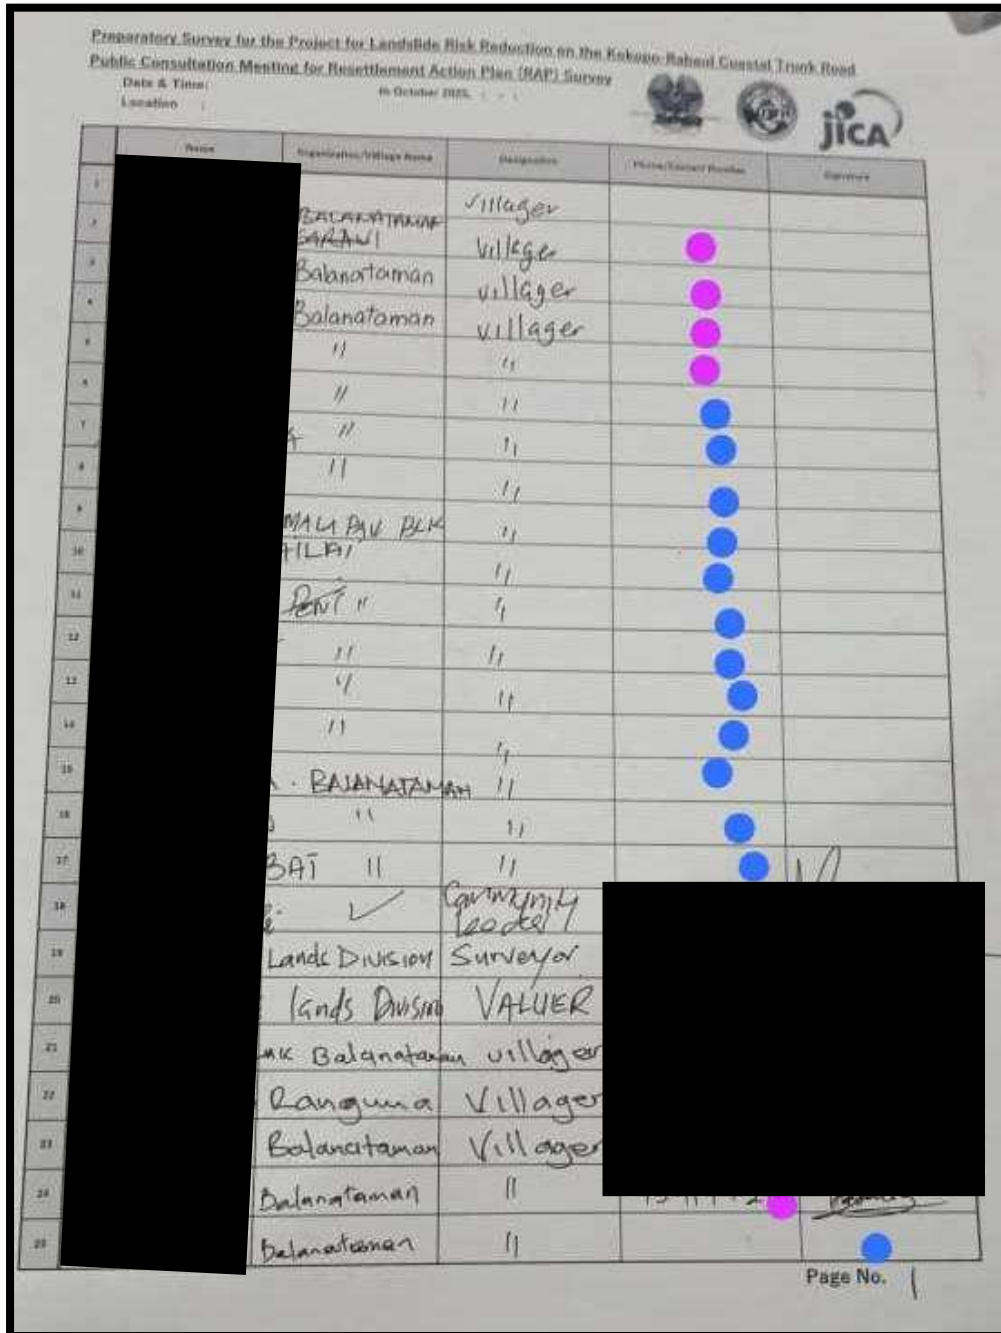 Preparatory Survey for the Project for Landslide Risk Reduction on the Kokopo-Rabaul Coastal Trunk Road
Public Consultation Meeting for Resettlement Action Plan (RAP) Survey
Date & Time: October 2025,
Location :
JICA
Name Organization/Village Name Designation Phone/Contact Number Signature
1 Villager
2 BALANATAMAN SARAWI Villager
3 Balanataman villager
4 Balanataman villager
5 " "
6 " "
7 " "
8 " "
9 MALAPAU BLK "
10 "
11 "
12 " "
13 " "
14 " "
15 BALANATAMAN "
16 " "
17 BAI " "
18 Community Leader
19 Lands Division Surveyor
20 Lands Division VALUER
21 Balanataman villager
22 Ranguna Villager
23 Balanataman Villager
24 Balanataman "
25 Balanataman "
Page No. 1